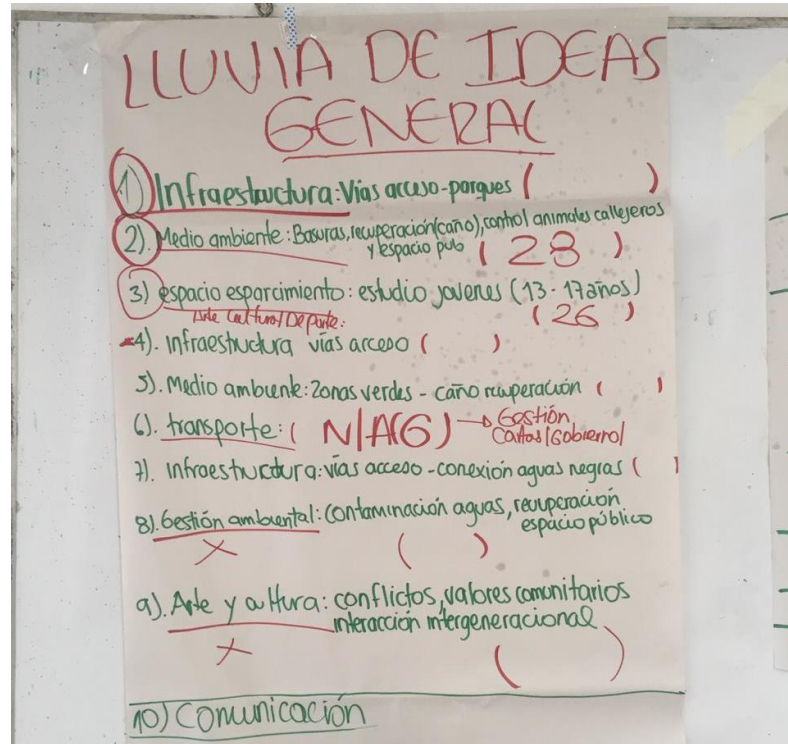 LLUVIA DE IDEAS
GENERAL
1) Infraestructura: Vías acceso - parques ( )
2). Medio ambiente: Basuras, recuperación (caño), control animales callejeros
y espacio pub ( 28 )
3) espacio esparcimiento: estudio jovenes (13 - 17 años)
Arte Cultura/Deporte: ( 26 )
4). Infraestructura vías acceso ( )
5). Medio ambiente: Zonas verdes - caño recuperación ( )
6). transporte: ( N/A(6) → Gestión
Cartas/Gobierno/
7). Infraestructura: vías acceso - conexión aguas negras ( )
8). Gestión ambiental: Contaminación aguas, recuperación
espacio público
X ( )
9). Arte y cultura: conflictos, valores comunitarios
interacción intergeneracional
X ( )
10) Comunicación